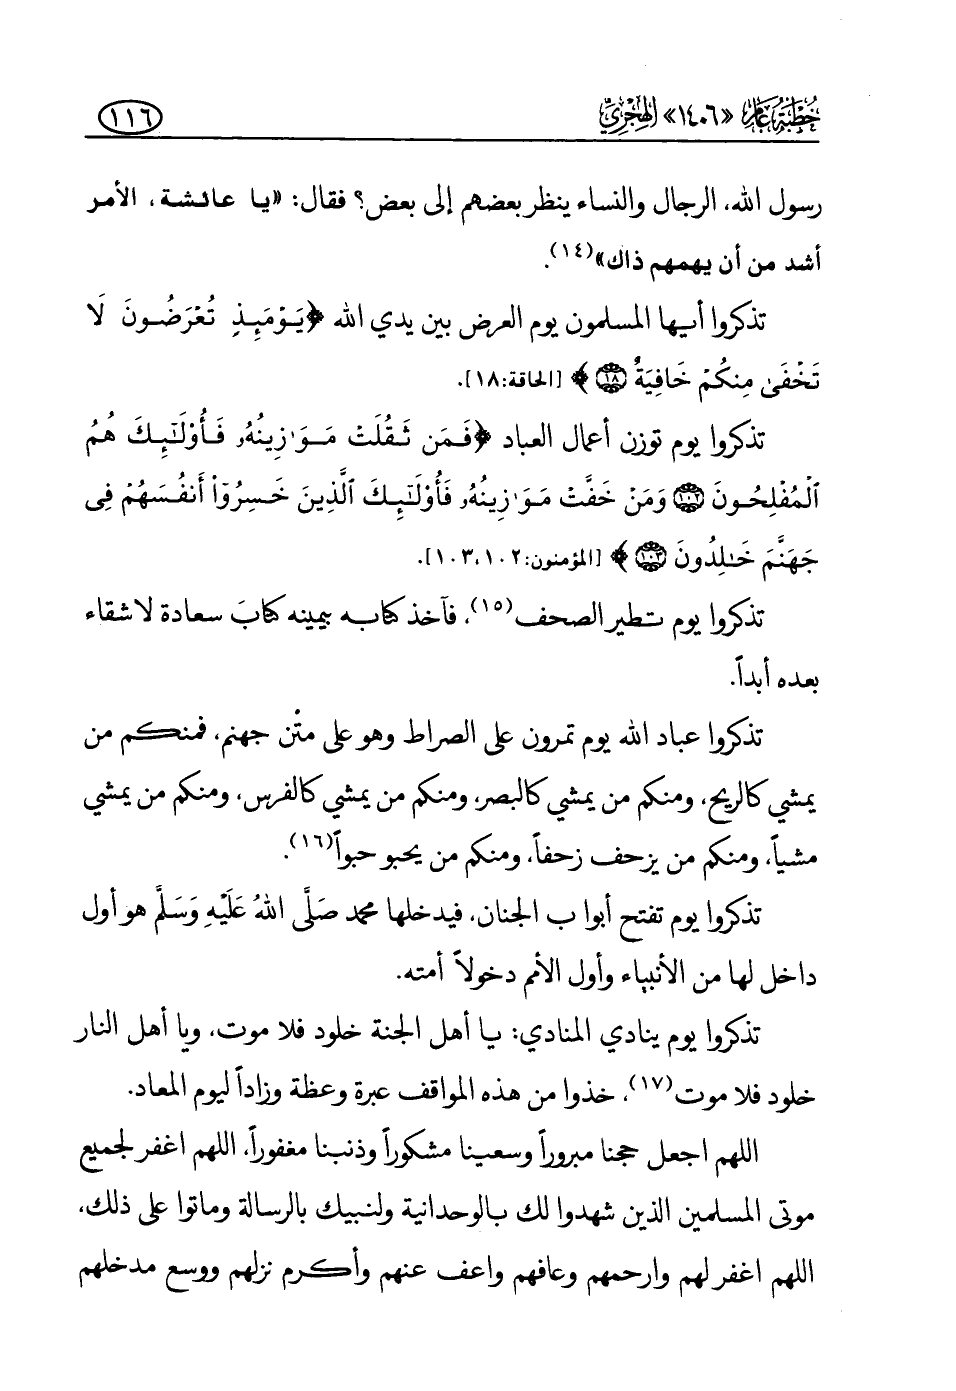 خطبة عام «١٤٠٦» الهجري
١١٦
رسول الله، الرجال والنساء ينظر بعضهم إلى بعض؟ فقال: «يا عائشة، الأمر
أشد من أن يهمهم ذاك»(١٤).
تذكروا أيها المسلمون يوم العرض بين يدي الله ﴿يَوْمَئِذٍ تُعْرَضُونَ لَا
تَخْفَىٰ مِنكُمْ خَافِيَةٌ ١٨﴾ [الحاقة:١٨].
تذكروا يوم توزن أعمال العباد ﴿فَمَن ثَقُلَتْ مَوَٰزِينُهُۥ فَأُوْلَٰٓئِكَ هُمُ
ٱلْمُفْلِحُونَ ١٠٢ وَمَنْ خَفَّتْ مَوَٰزِينُهُۥ فَأُوْلَٰٓئِكَ ٱلَّذِينَ خَسِرُوٓاْ أَنفُسَهُمْ فِى
جَهَنَّمَ خَٰلِدُونَ ١٠٣﴾ [المؤمنون:١٠٢،١٠٣].
تذكروا يوم تطير الصحف(١٥)، فآخذ كتابه بيمينه كتابَ سعادة لا شقاء
بعده أبداً.
تذكروا عباد الله يوم تمرون على الصراط وهو على متْن جهنم، فمنكم من
يمشي كالريح، ومنكم من يمشي كالبصر، ومنكم من يمشي كالفرس، ومنكم من يمشي
مشياً، ومنكم من يزحف زحفاً، ومنكم من يحبو حبواً(١٦).
تذكروا يوم تفتح أبوا ب الجنان، فيدخلها محمد صَلَّى اللهُ عَلَيْهِ وَسَلَّم هو أول
داخل لها من الأنبياء وأول الأمم دخولاً أمته.
تذكروا يوم ينادي المنادي: يا أهل الجنة خلود فلا موت، ويا أهل النار
خلود فلا موت(١٧)، خذوا من هذه المواقف عبرة وعظة وزاداً ليوم المعاد.
اللهم اجعل حجنا مبروراً وسعينا مشكوراً وذنبنا مغفوراً، اللهم اغفر لجميع
موتى المسلمين الذين شهدوا لك بالوحدانية ولنبيك بالرسالة وماتوا على ذلك،
اللهم اغفر لهم وارحمهم وعافهم واعف عنهم وأكرم نزلهم ووسع مدخلهم